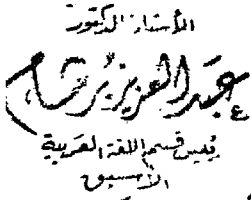 الأستاذ الدكتور
عبد العزيز برشام
رئيس قسم اللغة العربية
الأسبق